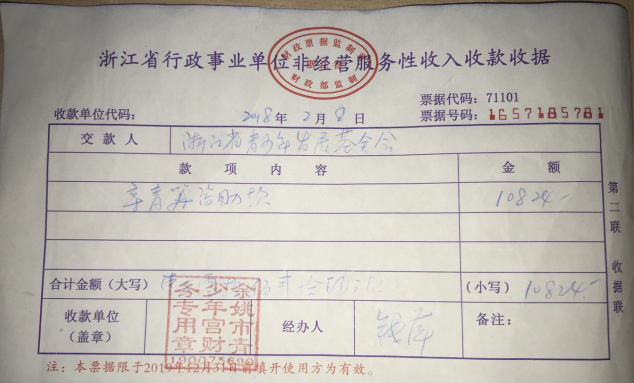 浙江省行政事业单位非经营服务性收入收款收据
财政票据监制章
财政部监制
票据代码：71101
收款单位代码： 2018年2月8日 票据号码：1657185781
交款人 浙江省青少年发展基金会
款项内容 金额
助款 10824.-
合计金额（大写） （小写）10824.-
收款单位（盖章） 余姚市青少年宫财务专用章 经办人 备注：
第二联 收据联
注：本票据限于2019年12月31日前填开使用方为有效。